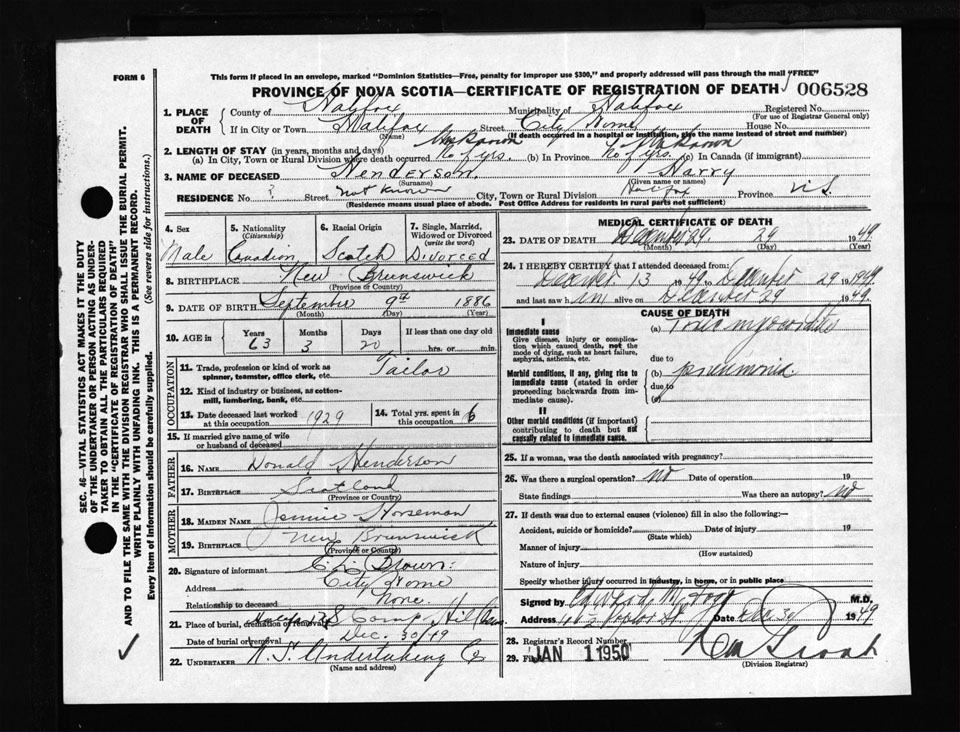 FORM 6
This form if placed in an envelope, marked "Dominion Statistics—Free, penalty for improper use $300," and properly addressed will pass through the mail "FREE"
PROVINCE OF NOVA SCOTIA—CERTIFICATE OF REGISTRATION OF DEATH 006528
1. PLACE OF DEATH
County of Halifax Municipality of Halifax Registered No.
(For use of Registrar General only)
If in City or Town Halifax Street City Home House No.
(Name) (If death occurred in a hospital or institution, give the name instead of street and number)
2. LENGTH OF STAY (in years, months and days)
(a) In City, Town or Rural Division where death occurred Unknown No of yrs. (b) In Province Unknown No of yrs. (c) In Canada (if immigrant)
3. NAME OF DECEASED Henderson. Harry
(Surname) (Given name or names)
RESIDENCE No. ? Street not known City, Town or Rural Division Halifax Province N.S.
(Residence means usual place of abode. Post Office Address for residents in rural parts not sufficient)
4. Sex
Male
5. Nationality
(Citizenship)
Canadian
6. Racial Origin
Scotch
7. Single, Married, Widowed or Divorced
(write the word)
Divorced
8. BIRTHPLACE New Brunswick
(Province or Country)
9. DATE OF BIRTH September 9th 1886
(Month) (Day) (Year)
10. AGE in Years Months Days If less than one day old
63 3 20 hrs. or min.
OCCUPATION
11. Trade, profession or kind of work as spinner, teamster, office clerk, etc. Tailor
12. Kind of industry or business, as cotton-mill, lumbering, bank, etc.
13. Date deceased last worked at this occupation 1929
14. Total yrs. spent in this occupation 6
15. If married give name of wife or husband of deceased
FATHER
16. Name Donald Henderson
17. Birthplace Scotland
(Province or Country)
MOTHER
18. Maiden Name Jennie Horseman
19. Birthplace New Brunswick
(Province or Country)
20. Signature of informant Brown.
Address City Home
Relationship to deceased None.
21. Place of burial, cremation or removal Camp Hill
Date of burial or removal Dec. 30/49
22. UNDERTAKER N.S. Undertaking Co
(Name and address)
MEDICAL CERTIFICATE OF DEATH
23. DATE OF DEATH December 29. 29 1949
(Month) (Day) (Year)
24. I HEREBY CERTIFY that I attended deceased from:
December 13 1949 to December 29 1949.
and last saw him alive on December 29 1949.
CAUSE OF DEATH
I
Immediate cause
Give disease, injury or complication which caused death, not the mode of dying, such as heart failure, asphyxia, asthenia, etc.
(a) Toxic myocarditis
due to
Morbid conditions, if any, giving rise to immediate cause (stated in order proceeding backwards from immediate cause).
(b) pneumonia.
due to
(c)
II
Other morbid conditions (if important) contributing to death but not causally related to immediate cause.
25. If a woman, was the death associated with pregnancy?
26. Was there a surgical operation? no Date of operation 19
State findings Was there an autopsy? no
27. If death was due to external causes (violence) fill in also the following:—
Accident, suicide or homicide? Date of injury 19
(State which)
Manner of injury
(How sustained)
Nature of injury
Specify whether injury occurred in industry, in home, or in public place
Signed by M.D.
Address Date Dec. 30/ 1949
28. Registrar's Record Number
29. Filed JAN 1 1950
(Division Registrar)
SEC. 46—VITAL STATISTICS ACT MAKES IT THE DUTY
OF THE UNDERTAKER OR PERSON ACTING AS UNDER-
TAKER TO OBTAIN ALL THE PARTICULARS REQUIRED
IN THE "CERTIFICATE OF REGISTRATION OF DEATH"
AND TO FILE THE SAME WITH THE DIVISION REGISTRAR WHO SHALL ISSUE THE BURIAL PERMIT.
WRITE PLAINLY WITH UNFADING INK. THIS IS A PERMANENT RECORD.
Every item of Information should be carefully supplied. (See reverse side for instructions.)